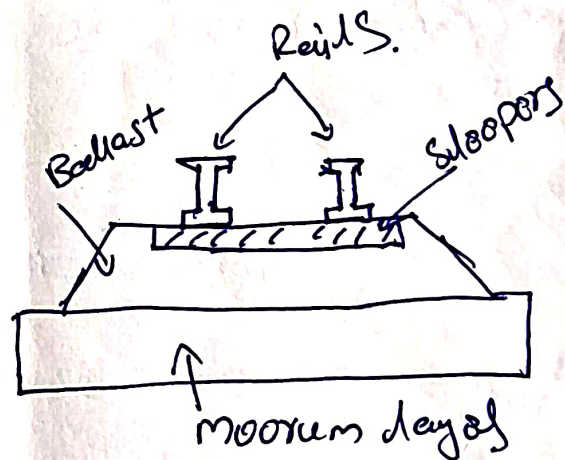 Rails.
Ballast
Sleepers
moorum layer